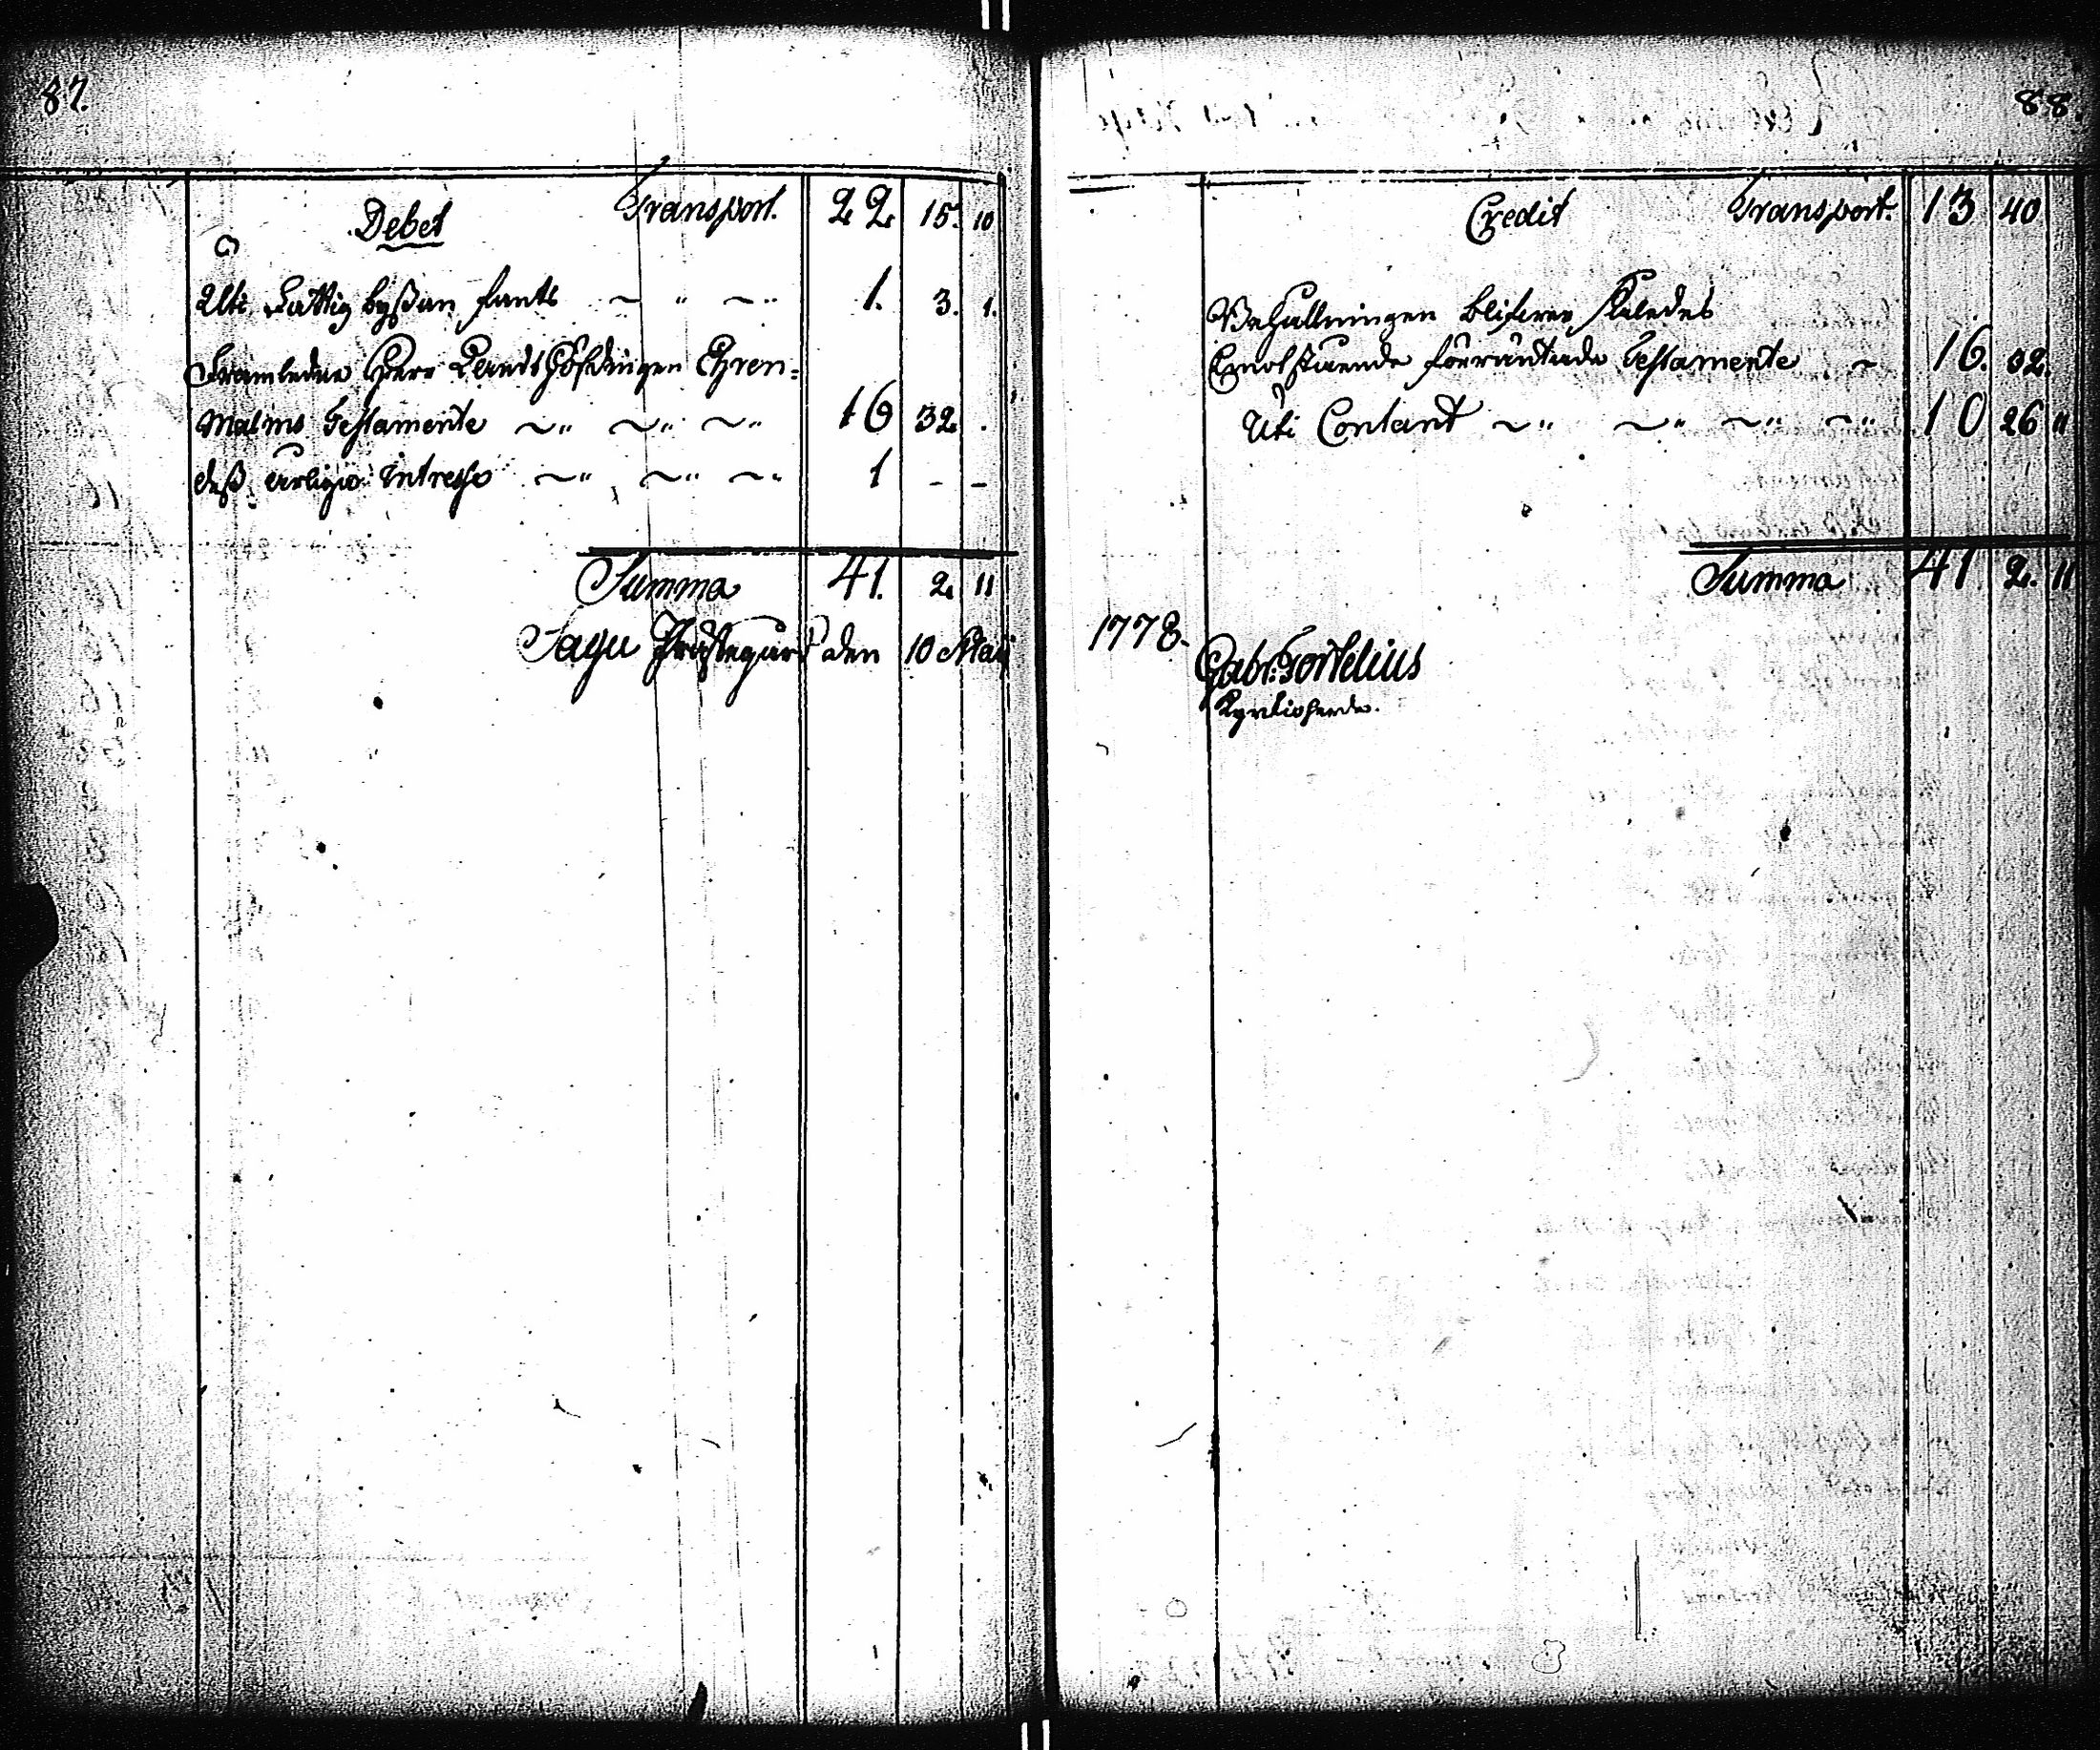 87.
Debet Transport. 22 15. 10
Uti Fattig byßan fants ~ " ~ " 1. 3. 1.
Framledne Herr Landshöfdingen Ehren=
malms Testamente ~ " ~ " ~ " 16 32 .
deß årliga Intresse ~ " ~ " ~ " 1 - -
Summa 41. 2. 11
Sagu Prästegård den 10 Maij
88.
Credit Transport. 13 40
Behållningen blifver således
Emotstående förräntade Testamente ~ 16. 32.
Uti Contant ~ " ~ " ~ " ~ " 10 26 11
Summa 41 2. 11
1778.
Gabr: Fortelius
Kyrkioherde.